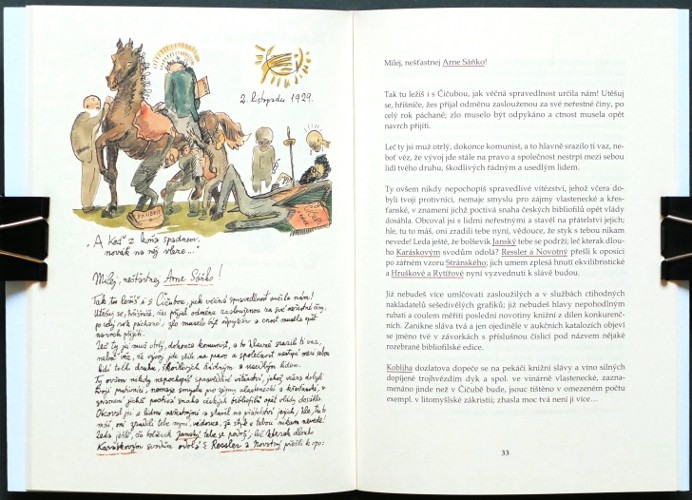 2. listopadu 1929.
„A Koš" z koňa spadnem,
novák na něj vleze...."
Milej, nešťastnej Arne Sáňko!
Tak tu ležíš i s Čičubou, jak věčná spravedlnost určila nám!
Utěšuj se, hříšníče, žes přijal odměnu zaslouženou za své neřestné činy,
po celý rok páchané; zlo muselo být odpykáno a ctnost musela opět
navrch přijíti.
Leč ty jsi muž otrlý, dokonce komunist, a to hlavně srazilo ti vaz,
neboť věz, že vývoj jde stále na pravo a společnost nestrpí mezi sebou
lidí tvého druhu, škodlivých řádným a usedlým lidem.
Ty ovšem nikdy nepochopíš spravedlivé vítězství, jehož včera dobyli
tvoji protivníci, nemaje smyslu pro zájmy vlastenecké a křesťanské, v
znamení jichž poctivá snaha českých bibliofilů opět vlády dosáhla.
Obcoval jsi s lidmi neřestnými a stavěl na přátelství jejich; hle, tu to
máš, oni zradili tebe nyní, vědouce, že styk s tebou nikam nevede!
Leda ještě, že bolševik Janský tebe se podrží; leč kterak dlouho
Karáskovým svodům odolá? Ressler a Novotný přešli k opo-
Milej, nešťastnej Arne Sáňko!
Tak tu ležíš i s Čičubou, jak věčná spravedlnost určila nám! Utěšuj
se, hříšníče, žes přijal odměnu zaslouženou za své neřestné činy, po
celý rok páchané; zlo muselo být odpykáno a ctnost musela opět
navrch přijíti.
Leč ty jsi muž otrlý, dokonce komunist, a to hlavně srazilo ti vaz,
neboť věz, že vývoj jde stále na pravo a společnost nestrpí mezi sebou
lidí tvého druhu, škodlivých řádným a usedlým lidem.
Ty ovšem nikdy nepochopíš spravedlivé vítězství, jehož včera do-
byli tvoji protivníci, nemaje smyslu pro zájmy vlastenecké a křes-
ťanské, v znamení jichž poctivá snaha českých bibliofilů opět vlády
dosáhla. Obcoval jsi s lidmi neřestnými a stavěl na přátelství jejich;
hle, tu to máš, oni zradili tebe nyní, vědouce, že styk s tebou nikam
nevede! Leda ještě, že bolševik Janský tebe se podrží; leč kterak dlouho
Karáskovým svodům odolá? Ressler a Novotný přešli k oposici
po zárném vzoru Stránského; jich umem zplesá hnutí ekvilibristické
a Hruškové a Rytířové nyní vyzvednuti k slávě budou.
Již nebudeš více umlčovati zasloužilých a v službách ctihodných
nakladatelů sešedivělých grafiků; již nebudeš hlavy nepohodlným
rubati a coulem měřiti poslední novotiny knižní z dílen konkurenč-
ních. Zanikne sláva tvá a jen ojediněle v aukčních katalozích objeví
se jméno tvé v závorkách s příslušnou číslicí pod názvem nějaké
rozebrané bibliofilské edice.
Kobliha dozlatova dopeče se na pekáči knižní slávy a víno silných
dopíjené trojhvězdím dyk a spol. ve vinárně vlastenecké, zazna-
menáno jinde než v Čičubě bude, jsouc tištěno v omezeném počtu
exempl. v litomyšlské zákristii; zhasla moc tvá není ji více…
33